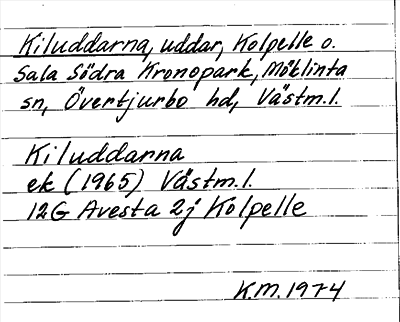 Kiluddarna, uddar, Kolpelle o.
Sala Södra Kronopark, Möklinta
sn, Övertjurbo hd, Västm.l.
Kiluddarna
ek (1965) Västm.l.
12G Avesta 2j Kolpelle
K.M. 1974